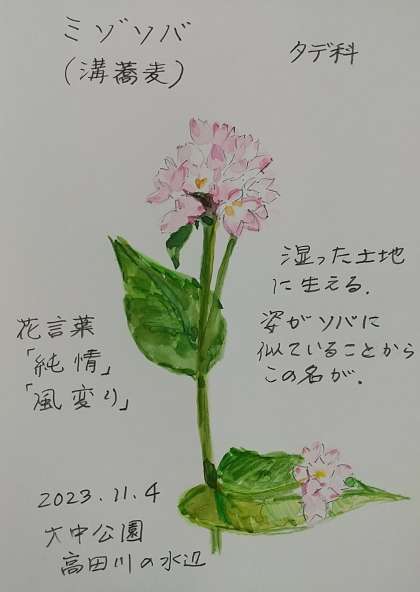 ミゾソバ
(溝蕎麦)
タデ科
湿った土地
に生える.
姿がソバに
似ていることから
この名が.
花言葉
「純情」
「風変り」
2023.11.4
大中公園
高田川の水辺